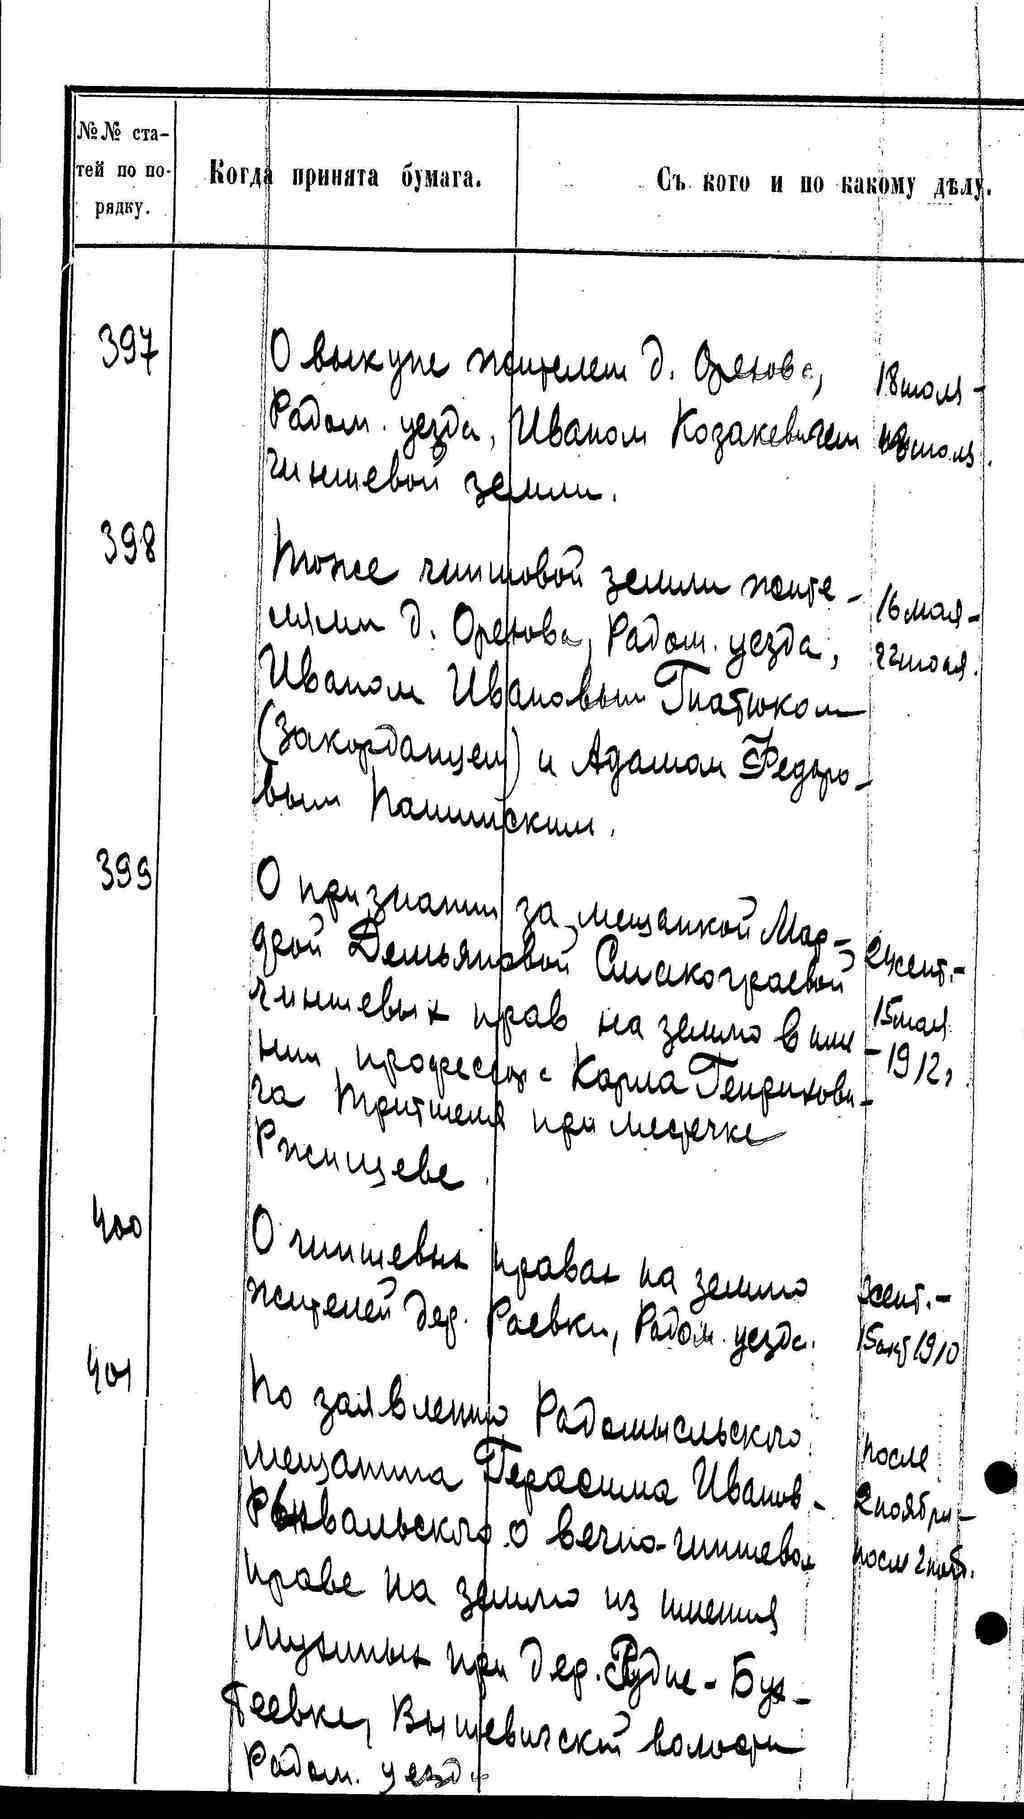 №№ ста-
тей по по-
рядку.
Когда принята бумага.
Съ кого и по какому дѣлу.
397
О выкупе жителем д. Орехова,
Радом. уезда, Иваном Козакевичем
чиншевой земли.
18 июля -
июля.
398
Тоже чиншовой земли жите-
лями д. Орехова, Радом. уезда,
Иваном Ивановым Гнатюком
(Закорданцем) и Адамом Федоро-
вым
16 мая -
22 июля.
399
О признании за мещанкой Мар-
фой Демьяновой
чиншевых прав на землю в име
нии профессора Карла Генрихови-
ча Тритшеля при местечке
Ржищеве.
24 сент. -
15 мая
- 1912.
400
О чиншевых правах на землю
жителей дер. Раевки, Радом. уезда.
сент. -
15 окт 1910
401
По заявлению Радомысльского
мещанина Герасима Иванов-
о вечно-чиншевом
праве на землю из имения
при дер. Рудне-Бух-
теевке, Вышевичской волости
Радом. уезда
после
2 ноября -
после 2 нояб.